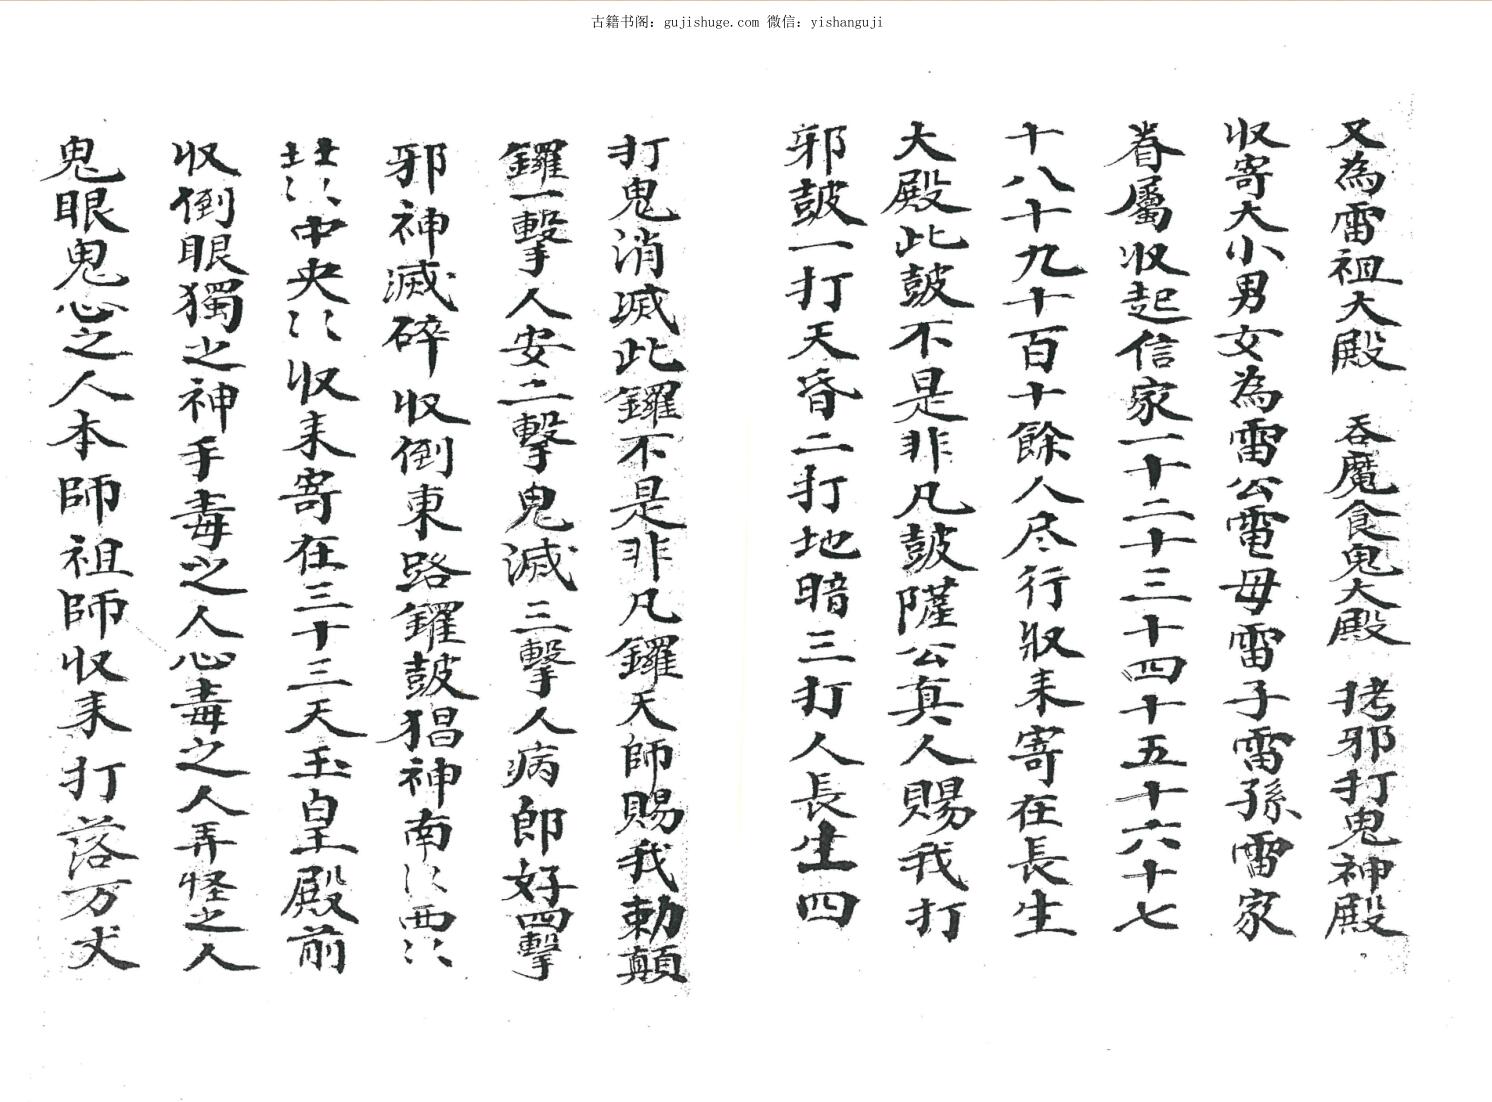 古籍书阁：gujishuge.com 微信：yishanguji
又為雷祖大殿 吞魔食鬼大殿 拷邪打鬼神殿
収寄大小男女為雷公電母雷子雷孫雷家
眷屬収起信家一十二十三十四十五十六十七
十八十九十百十餘人尽行収耒寄在長生
大殿此鼓不是非凡鼓薩公真人賜我打
邪鼓一打天昏二打地暗三打人長生四
打鬼消滅此鑼不是非凡鑼天師賜我勅顛
鑼一擊人安二擊鬼滅三擊人病郎好四擊
邪神滅碎収倒東路鑼鼓猖神南〻西〻
北〻中央〻収耒寄在三十三天玉皇殿前
収倒眼獨之神手毒之人心毒之人弄怪之人
鬼眼鬼心之人本師祖師収耒打落万丈